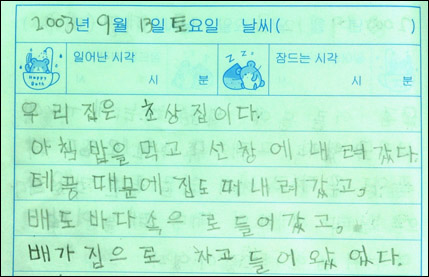 2003년 9월 13일 토요일 날씨( )
일어난 시각 시 분 Z Z Z 잠드는 시각 시 분
Happy Bath
우리 집은 초상집이다.
아침 밥을 먹고 선창에 내려갔다.
테풍 때문에 집도 떠내려갔고,
배도 바다 속으로 들어갔고,
배가 집으로 차고 들어 왔었다.